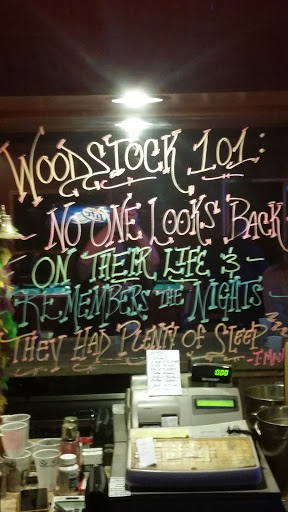 WOODSTOCK 101:
~ NO ONE LOOKS BACK
ON THEIR LIFE &
REMEMBERS THE NIGHTS
THEY HAD PLENTY OF SLEEP
0.00